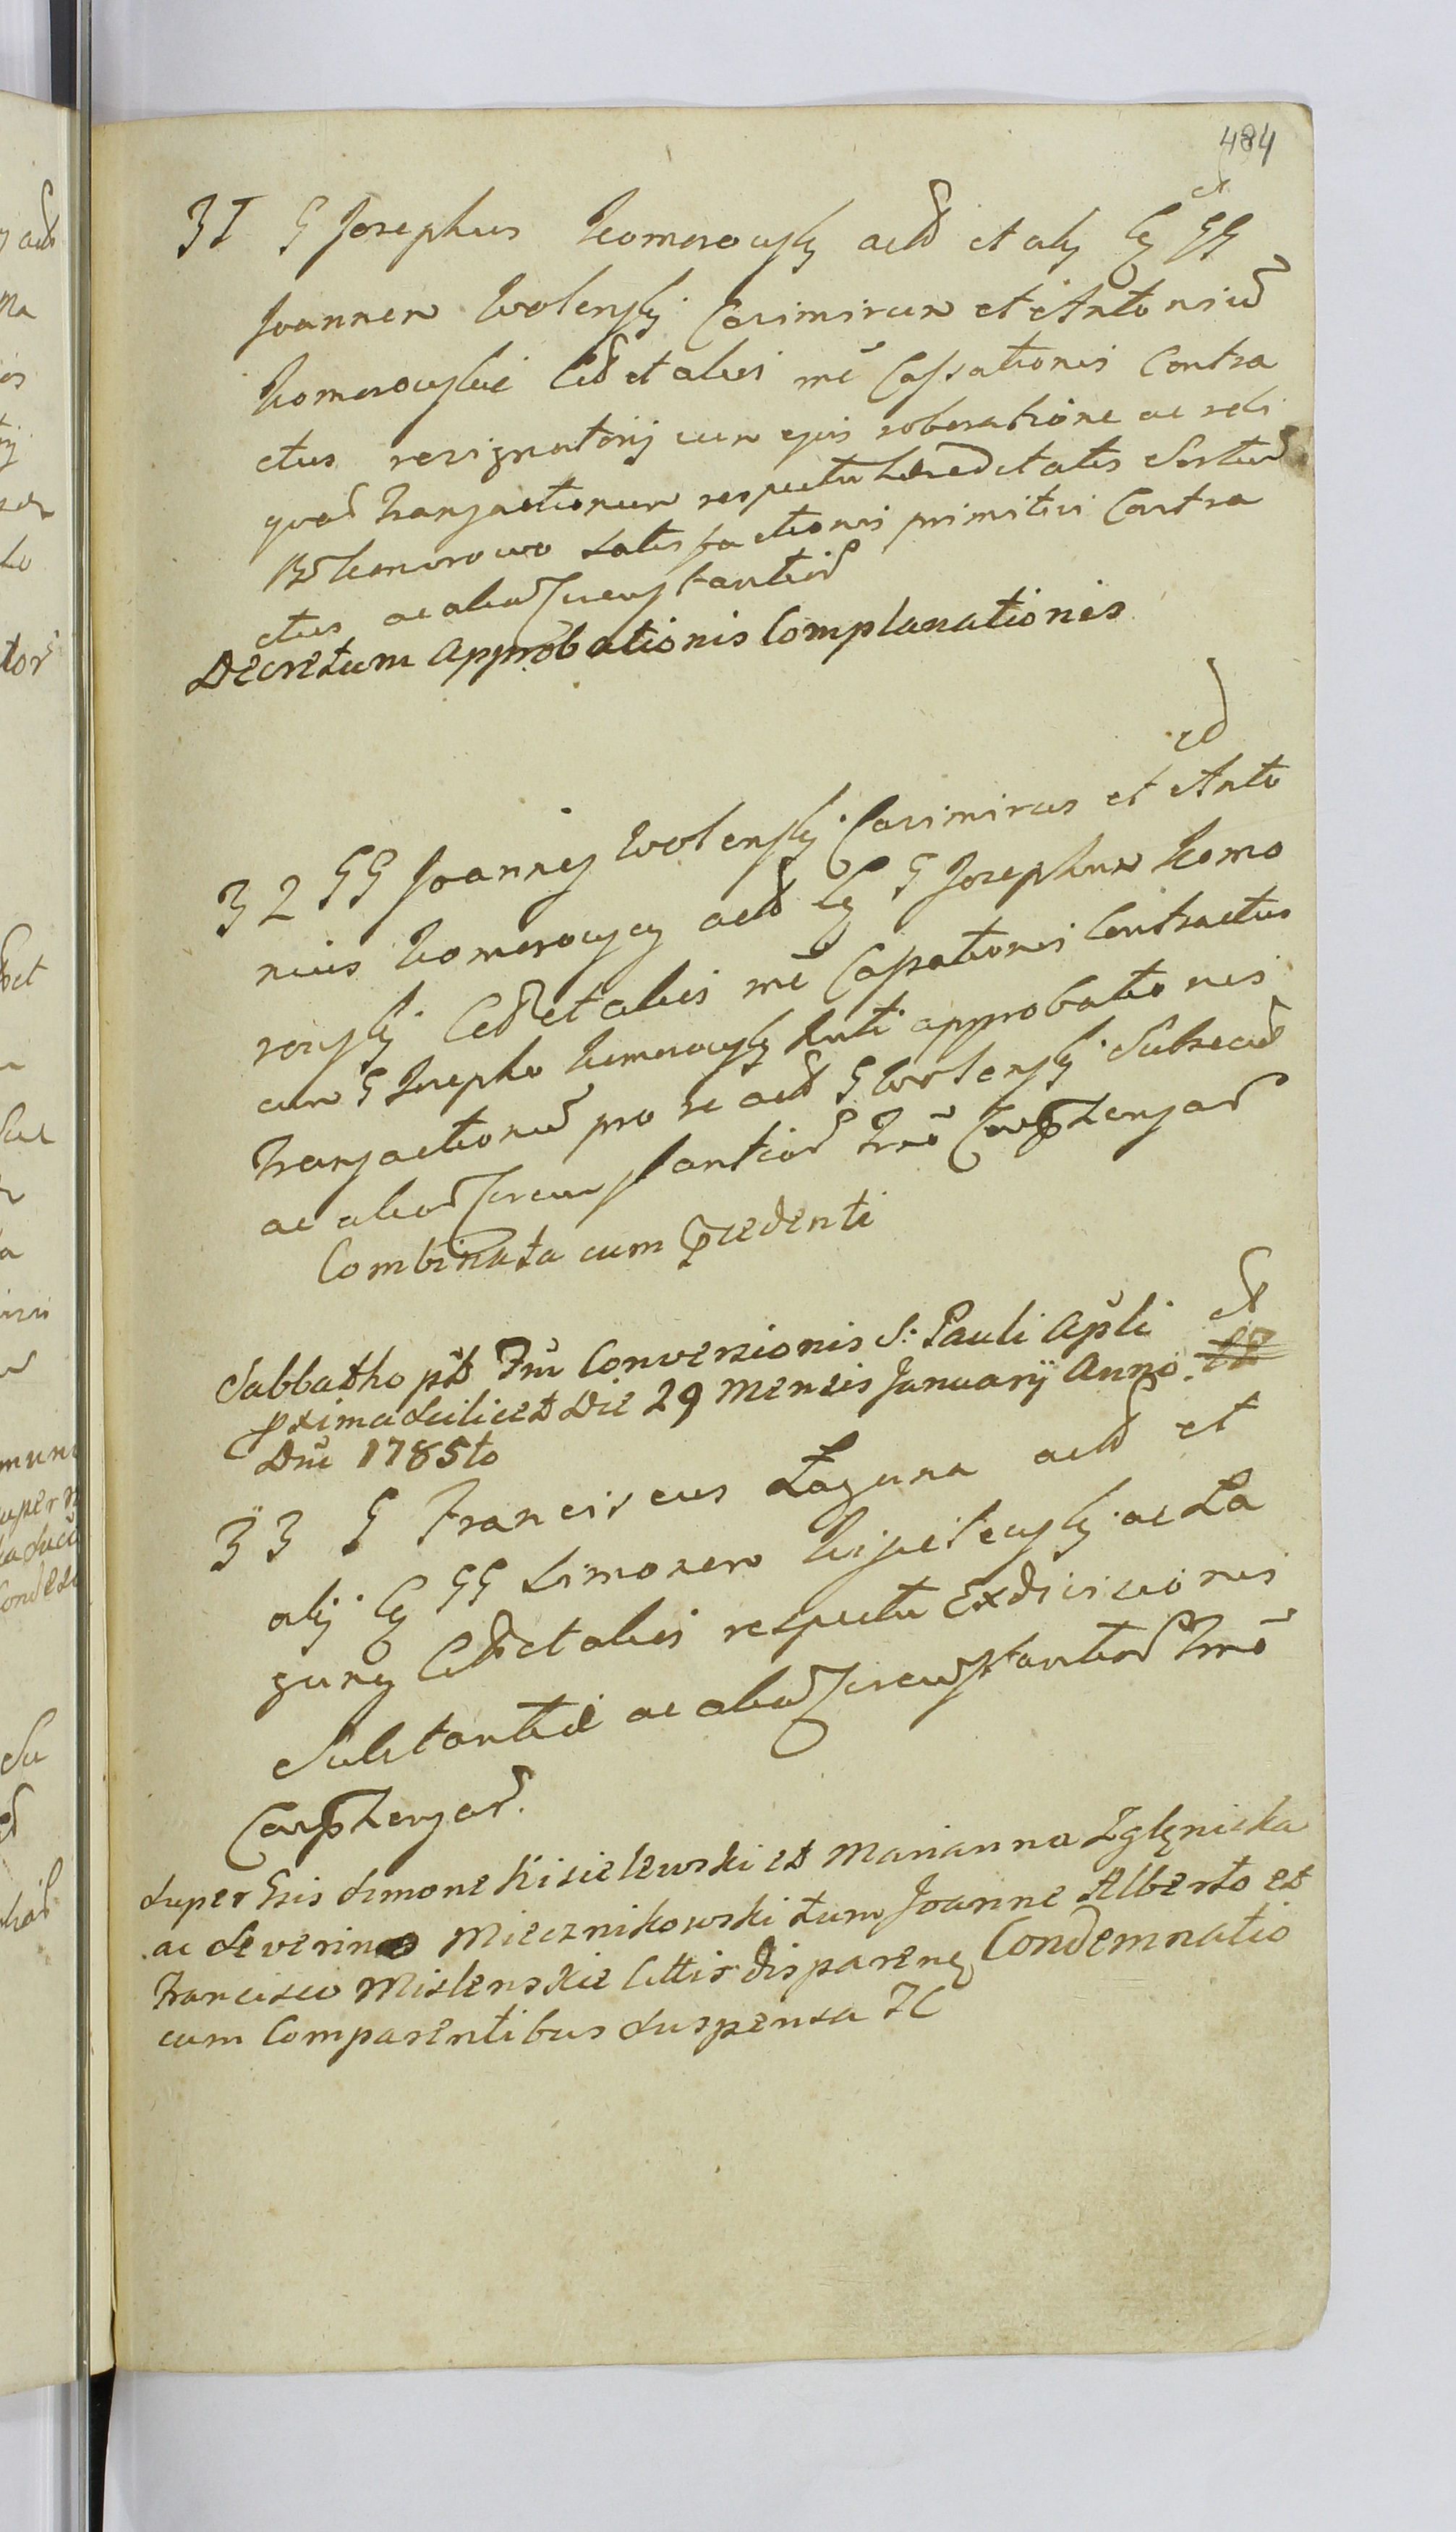 484
31 G Josephus Komorowsky actd et alij Cq GG
Joannem Wolensky Casimirum et Antoniu
Komorowskie Citd et alios mē Cassationis Contra
ctus resignatorij cum ejus roboratione ac reli
quar Transactionum respectu hæreditatis Sortiu
Komorowo satisfactionis primitivi Contra
ctus ac aliar Circumstantiar
Decretum Approbationis Complanationis
32 GG Joannes Wolensky Casimirus et Anto
nius Komorowscy actd Cq G Josephum Komo
rowsky Citd et alios mē Cassationis Contractus
cum G Josepho Komorowsky Initi approbationis
Transactionu pro se actd G Wolensky Subsecut
ac aliar Circumstantiar
Combinata cum Pcedenti
Sabbatho pst Ftm Conversionis S: Pauli Apli
pxima scilicet Die 29 Mensis January Anno
Dni 1785to
33 G Franciscus Laguna actd et
alij Cq GG Simonem Kisielewsky ac La
guny Citd et alios respectu Exdivisionis
Substantiæ ac aliar Circumstantiar
super Gsis Simone Kisielewski et Marianna Zglenicka
ac Severino Miecznikowski tum Joanne Alberto et
Francisco Mislenskie Cittis disparen Condemnatio
cum Comparentibus suspensa